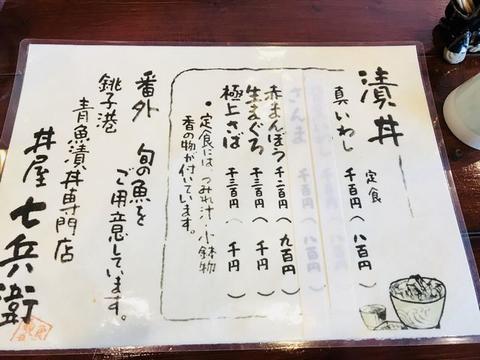 漬丼
定食
真いわし 千百円（八百円）
さんま （八百円）
赤まんぼう 千二百円（九百円）
生まぐろ 千三百円（千円）
極上さば 千三百円（千円）
・定食には、つみれ汁・小鉢物
香の物が付いています。
番外 旬の魚を
ご用意しています。
銚子港
青魚漬丼専門店
丼屋 七兵衛